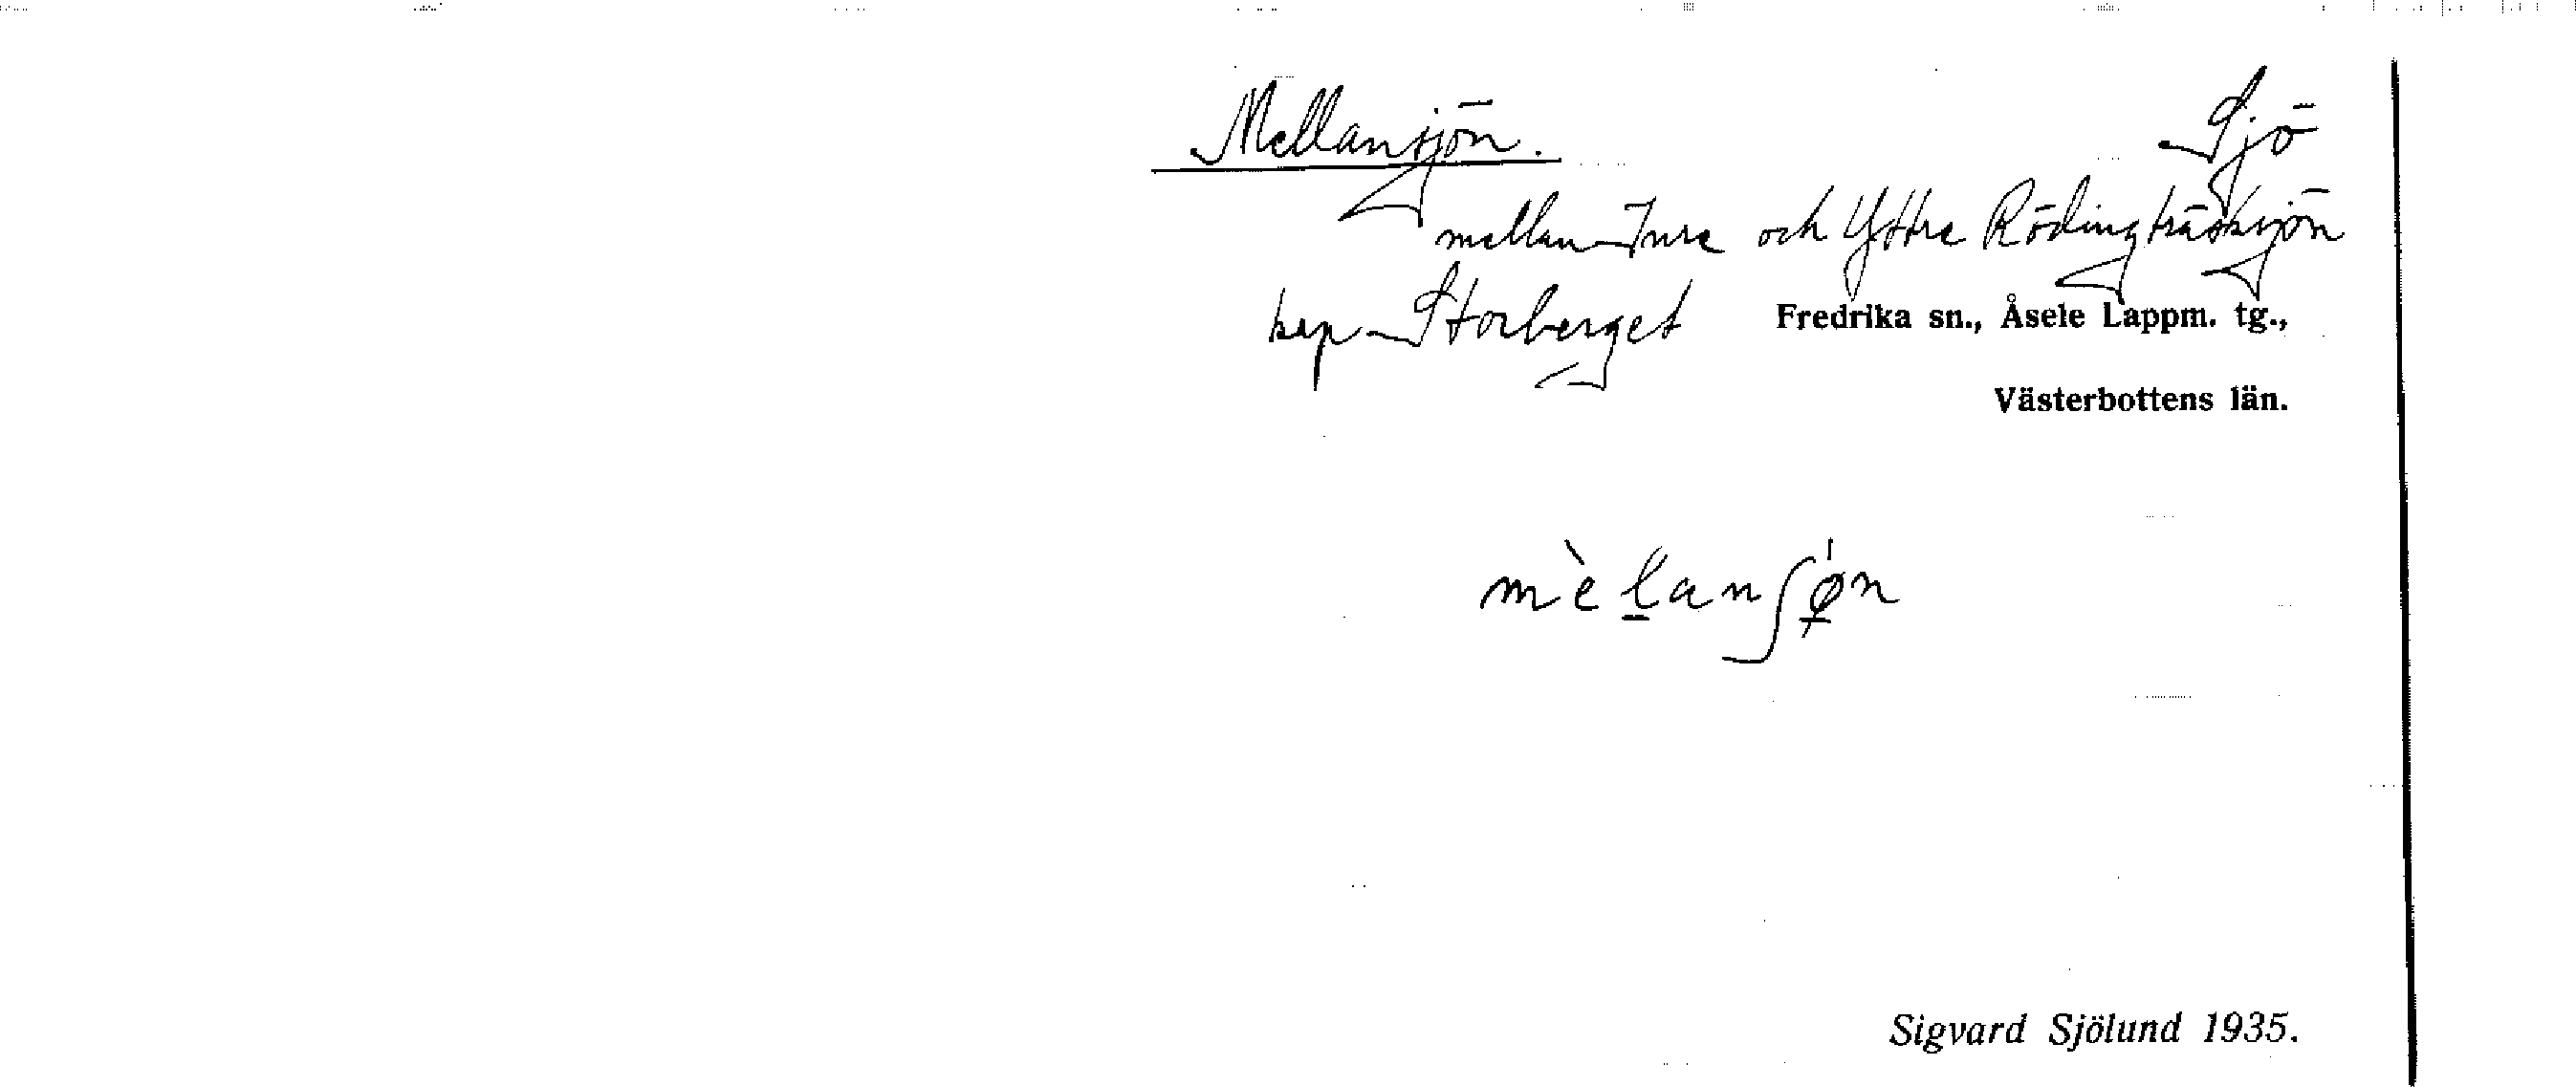 Mellansjön. Sjö
mellan Inre och Yttre Rödingträsksjön
Storberget Fredrika sn., Åsele Lappm. tg.,
Västerbottens län.
mèl̲anʃǿ̲n
Sigvard Sjölund 1935.